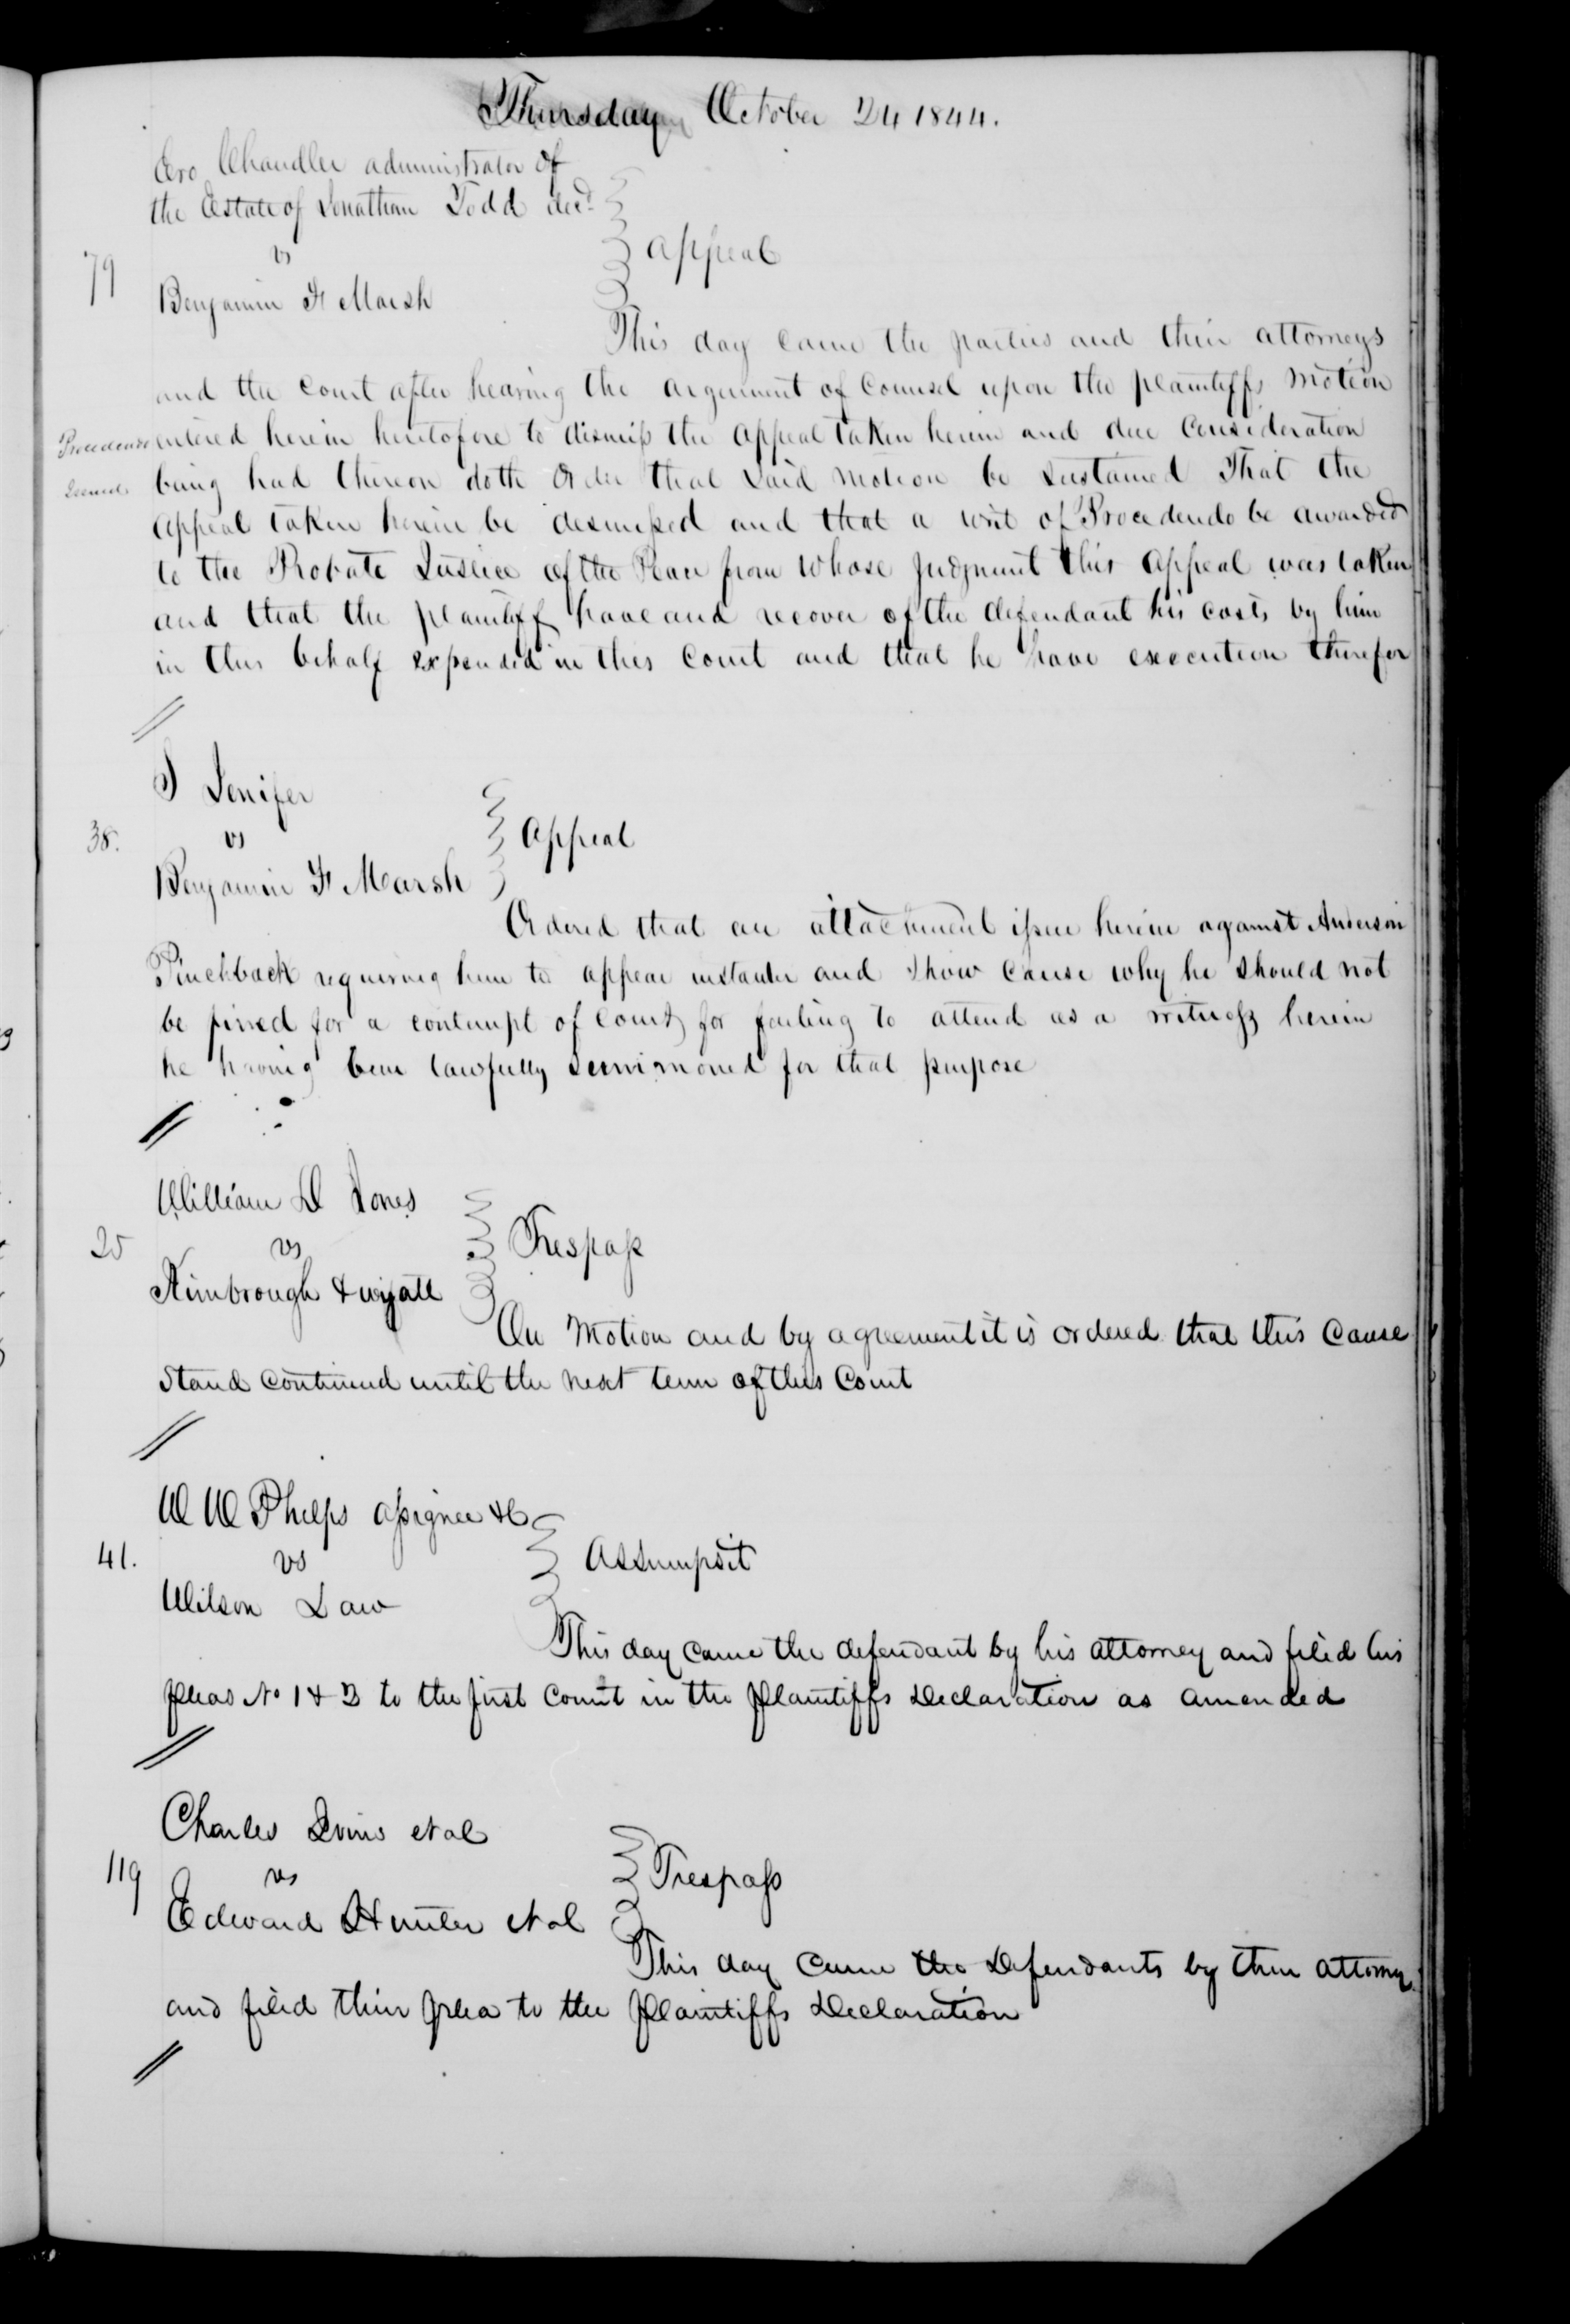 Thursday October 24 1844.
Geo Chandler administrator of
the Estate of Jonathan Todd decd
79
vs
Appeal
Benjamin F Marsh
This day came the parties and their attorneys
and the Court after hearing the argument of Counsel upon the plaintiffs Motion
Procedendo
entered herein heretofore to dismiss the Appeal taken herein and due Consideration
issued
being had thereon doth Order that said Motion be sustained That the
Appeal taken herein be dismissed and that a writ of Procedendo be awarded
to the Probate Justice of the Peace from whose Judgment this Appeal was taken
and that the plaintiff have and recover of the defendant his costs by him
in this behalf expended in this Court and that he have execution therefor
Jenifer
38.
vs
Appeal
Benjamin F Marsh
Ordered that an attachment issue herein against Anderson
Pinchback requiring him to appear instanter and show Cause why he should not
be fined for a contempt of Court for failing to attend as a witness herein
he having been lawfully summoned for that purpose
William D Jones
25
vs
Trespass
Kimbrough & wyatt
On Motion and by agreement it is ordered that this Cause
stand Continued until the next term of this Court
W W Phelps assignee &c
41.
vs
Assumpsit
Wilson Law
This day came the defendant by his attorney and filed his
pleas No 1 & 2 to the first Count in the Plaintiffs Declaration as amended
Charles Ivins et al
119
vs
Trespass
Edward Hunter et al
This day came the Defendants by their attorney
and filed their plea to the Plaintiffs Declaration